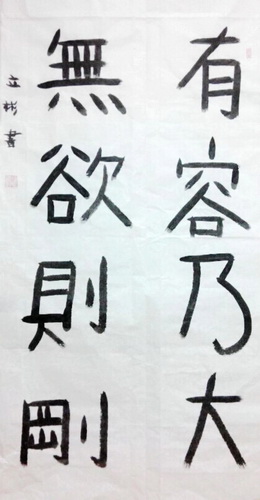 有容乃大
無欲則剛
立彬書